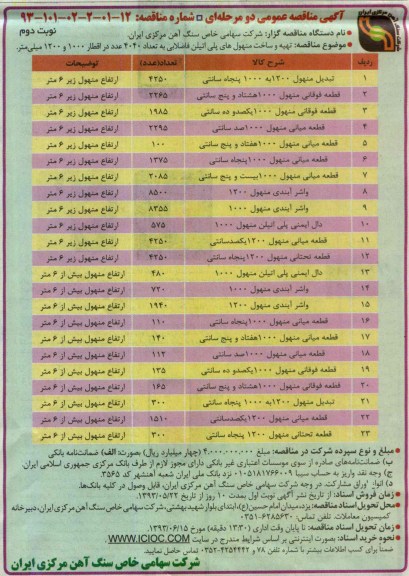 آگهی مناقصه عمومی دو مرحله‌ای • شماره مناقصه: ۱۲-۰۱-۲-۰۲-۱۰۱-۹۳
• نام دستگاه مناقصه گزار: شرکت سهامی خاص سنگ آهن مرکزی ایران
نوبت دوم
• موضوع مناقصه: تهیه و ساخت منهول های پلی اتیلن فاضلابی به تعداد ۴۰۴۰ عدد در اقطار ۱۰۰۰ و ۱۲۰۰ میلی‌متر.
ردیف شرح کالا تعداد(عدد) توضیحات
۱ تبدیل منهول ۱۲۰۰به ۱۰۰۰ پنجاه سانتی ۴۲۵۰ ارتفاع منهول زیر ۶ متر
۲ قطعه فوقانی منهول ۱۰۰۰هشتاد و پنج سانتی ۲۲۶۵ ارتفاع منهول زیر ۶ متر
۳ قطعه فوقانی منهول ۱۰۰۰یکصدو ده سانتی ۱۹۸۵ ارتفاع منهول زیر ۶ متر
۴ قطعه میانی منهول ۱۰۰۰صد سانتی ۲۲۹۵ ارتفاع منهول زیر ۶ متر
۵ قطعه میانی منهول ۱۰۰۰هفتاد و پنج سانتی ۱۰۰ ارتفاع منهول زیر ۶ متر
۶ قطعه میانی منهول ۱۰۰۰پنجاه سانتی ۱۳۷۵ ارتفاع منهول زیر ۶ متر
۷ قطعه میانی منهول ۱۰۰۰بیست و پنج سانتی ۲۰۸۵ ارتفاع منهول زیر ۶ متر
۸ واشر آببندی منهول ۱۲۰۰ ۸۵۰۰ ارتفاع منهول زیر ۶ متر
۹ واشر آببندی منهول ۱۰۰۰ ۸۳۵۵ ارتفاع منهول زیر ۶ متر
۱۰ دال ایمنی پلی اتیلن منهول ۱۰۰۰ ۵۷۵ ارتفاع منهول زیر ۶ متر
۱۱ قطعه میانی منهول ۱۲۰۰یکصدسانتی ۴۲۵۰ ارتفاع منهول زیر ۶ متر
۱۲ قطعه تحتانی منهول ۱۲۰۰ پنجاه سانتی ۴۲۵۰ ارتفاع منهول زیر ۶ متر
۱۳ دال ایمنی پلی اتیلن منهول ۱۰۰۰ ۴۸۰ ارتفاع منهول بیش از ۶ متر
۱۴ واشر آببندی منهول ۱۰۰۰ ۷۲۰ ارتفاع منهول بیش از ۶ متر
۱۵ واشر آببندی منهول ۱۲۰۰ ۱۹۴۰ ارتفاع منهول بیش از ۶ متر
۱۶ قطعه میانی منهول ۱۰۰۰پنجاه سانتی ۱۱۰ ارتفاع منهول بیش از ۶ متر
۱۷ قطعه میانی منهول ۱۰۰۰هفتاد و پنج سانتی ۱۴۰ ارتفاع منهول بیش از ۶ متر
۱۸ قطعه میانی منهول ۱۰۰۰صد سانتی ۱۱۲ ارتفاع منهول بیش از ۶ متر
۱۹ قطعه فوقانی منهول ۱۰۰۰یکصدو ده سانتی ۱۳۵ ارتفاع منهول بیش از ۶ متر
۲۰ قطعه فوقانی منهول ۱۰۰۰هشتاد و پنج سانتی ۱۶۵ ارتفاع منهول بیش از ۶ متر
۲۱ تبدیل منهول ۱۲۰۰به ۱۰۰۰ پنجاه سانتی ۳۰۰ ارتفاع منهول بیش از ۶ متر
۲۲ قطعه میانی منهول ۱۲۰۰یکصدسانتی ۱۵۱۰ ارتفاع منهول بیش از ۶ متر
۲۳ قطعه تحتانی منهول ۱۲۰۰ پنجاه سانتی ۳۰۰ ارتفاع منهول بیش از ۶ متر
• مبلغ و نوع سپرده شرکت در مناقصه: مبلغ ۴.۰۰۰.۰۰۰.۰۰۰ (چهار میلیارد ریال) بصورت: الف) ضمانت‌نامه بانکی
ب) ضمانت‌نامه‌های صادره از سوی موسسات اعتباری غیر بانکی دارای مجوز لازم از طرف بانک مرکزی جمهوری اسلامی ایران.
ج) وجه نقد واریز به حساب سیبا ۰۱۰۵۱۸۱۷۶۶۰۰۹ نزد بانک ملی ایران شعبه آهنشهر کد ۳۵۶۵.
د) انواع اوراق مشارکت، در وجه شرکت سهامی خاص سنگ آهن مرکزی ایران، قابل وصول در کلیه بانک‌ها.
• زمان فروش اسناد: از تاریخ نشر آگهی نوبت اول بمدت ۱۰ روز از تاریخ ۱۳۹۳/۰۵/۲۲
• محل تحویل اسناد مناقصه: یزد،میدان امام حسین(ع)،ابتدای بلوار شهید بهشتی،شرکت سنگ آهن مرکزی ایران،دبیرخانه
کمیسیون معاملات، تلفن تماس: ۶۲۸۵۶۳۰-۰۳۵۱
• زمان تحویل اسناد مناقصه: تا پایان وقت اداری (۱۳:۳۰ دقیقه) مورخ ۱۳۹۳/۰۶/۱۵
• نحوه خرید اسناد: بصورت اینترنتی بر اساس شرایط مندرج در سایت WWW.ICIOC.COM
ضمنا برای کسب اطلاعات بیشتر با شماره تلفن ۷۸ و ۴۲۵۴۴۴۲-۰۳۵۲ تماس حاصل نمایید.
شرکت سهامی خاص سنگ آهن مرکزی ایران